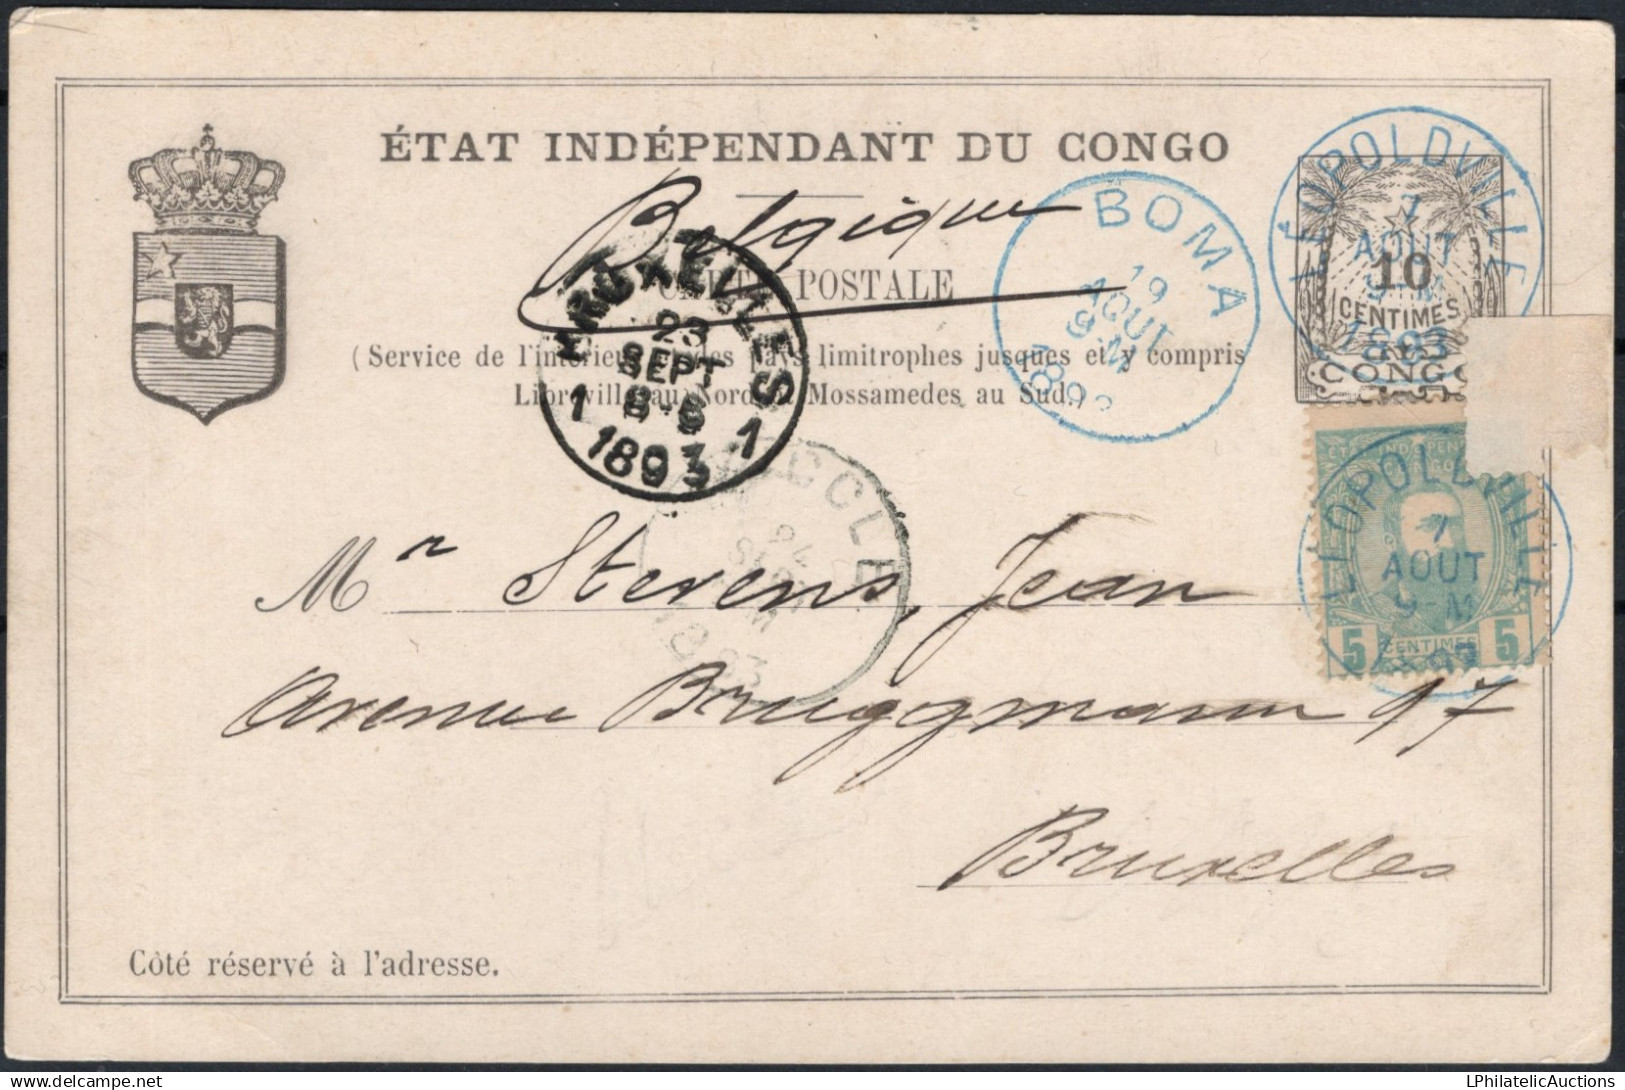 ÉTAT INDÉPENDANT DU CONGO
Belgique
CARTE POSTALE
(Service de l'intérieur et des pays limitrophes jusques et y compris
Libreville au Nord et Mossamedes au Sud.)
LÉOPOLDVILLE
7
AOUT
9-M
1893
10
CENTIMES
CONGO
BOMA
19
AOUT
9-M
189
BRUXELLES
23
SEPT
1 1
1893
UCCLE
24
SEPT
93
ÉTAT INDÉPENDANT
CONGO
LÉOPOLDVILLE
7
AOUT
9-M
5 CENTIMES 5
Mr Stevens, Jean
Avenue Bruggmann 97
Bruxelles
Côté réservé à l'adresse.
LPhilatelicAuctions
delcampe.net